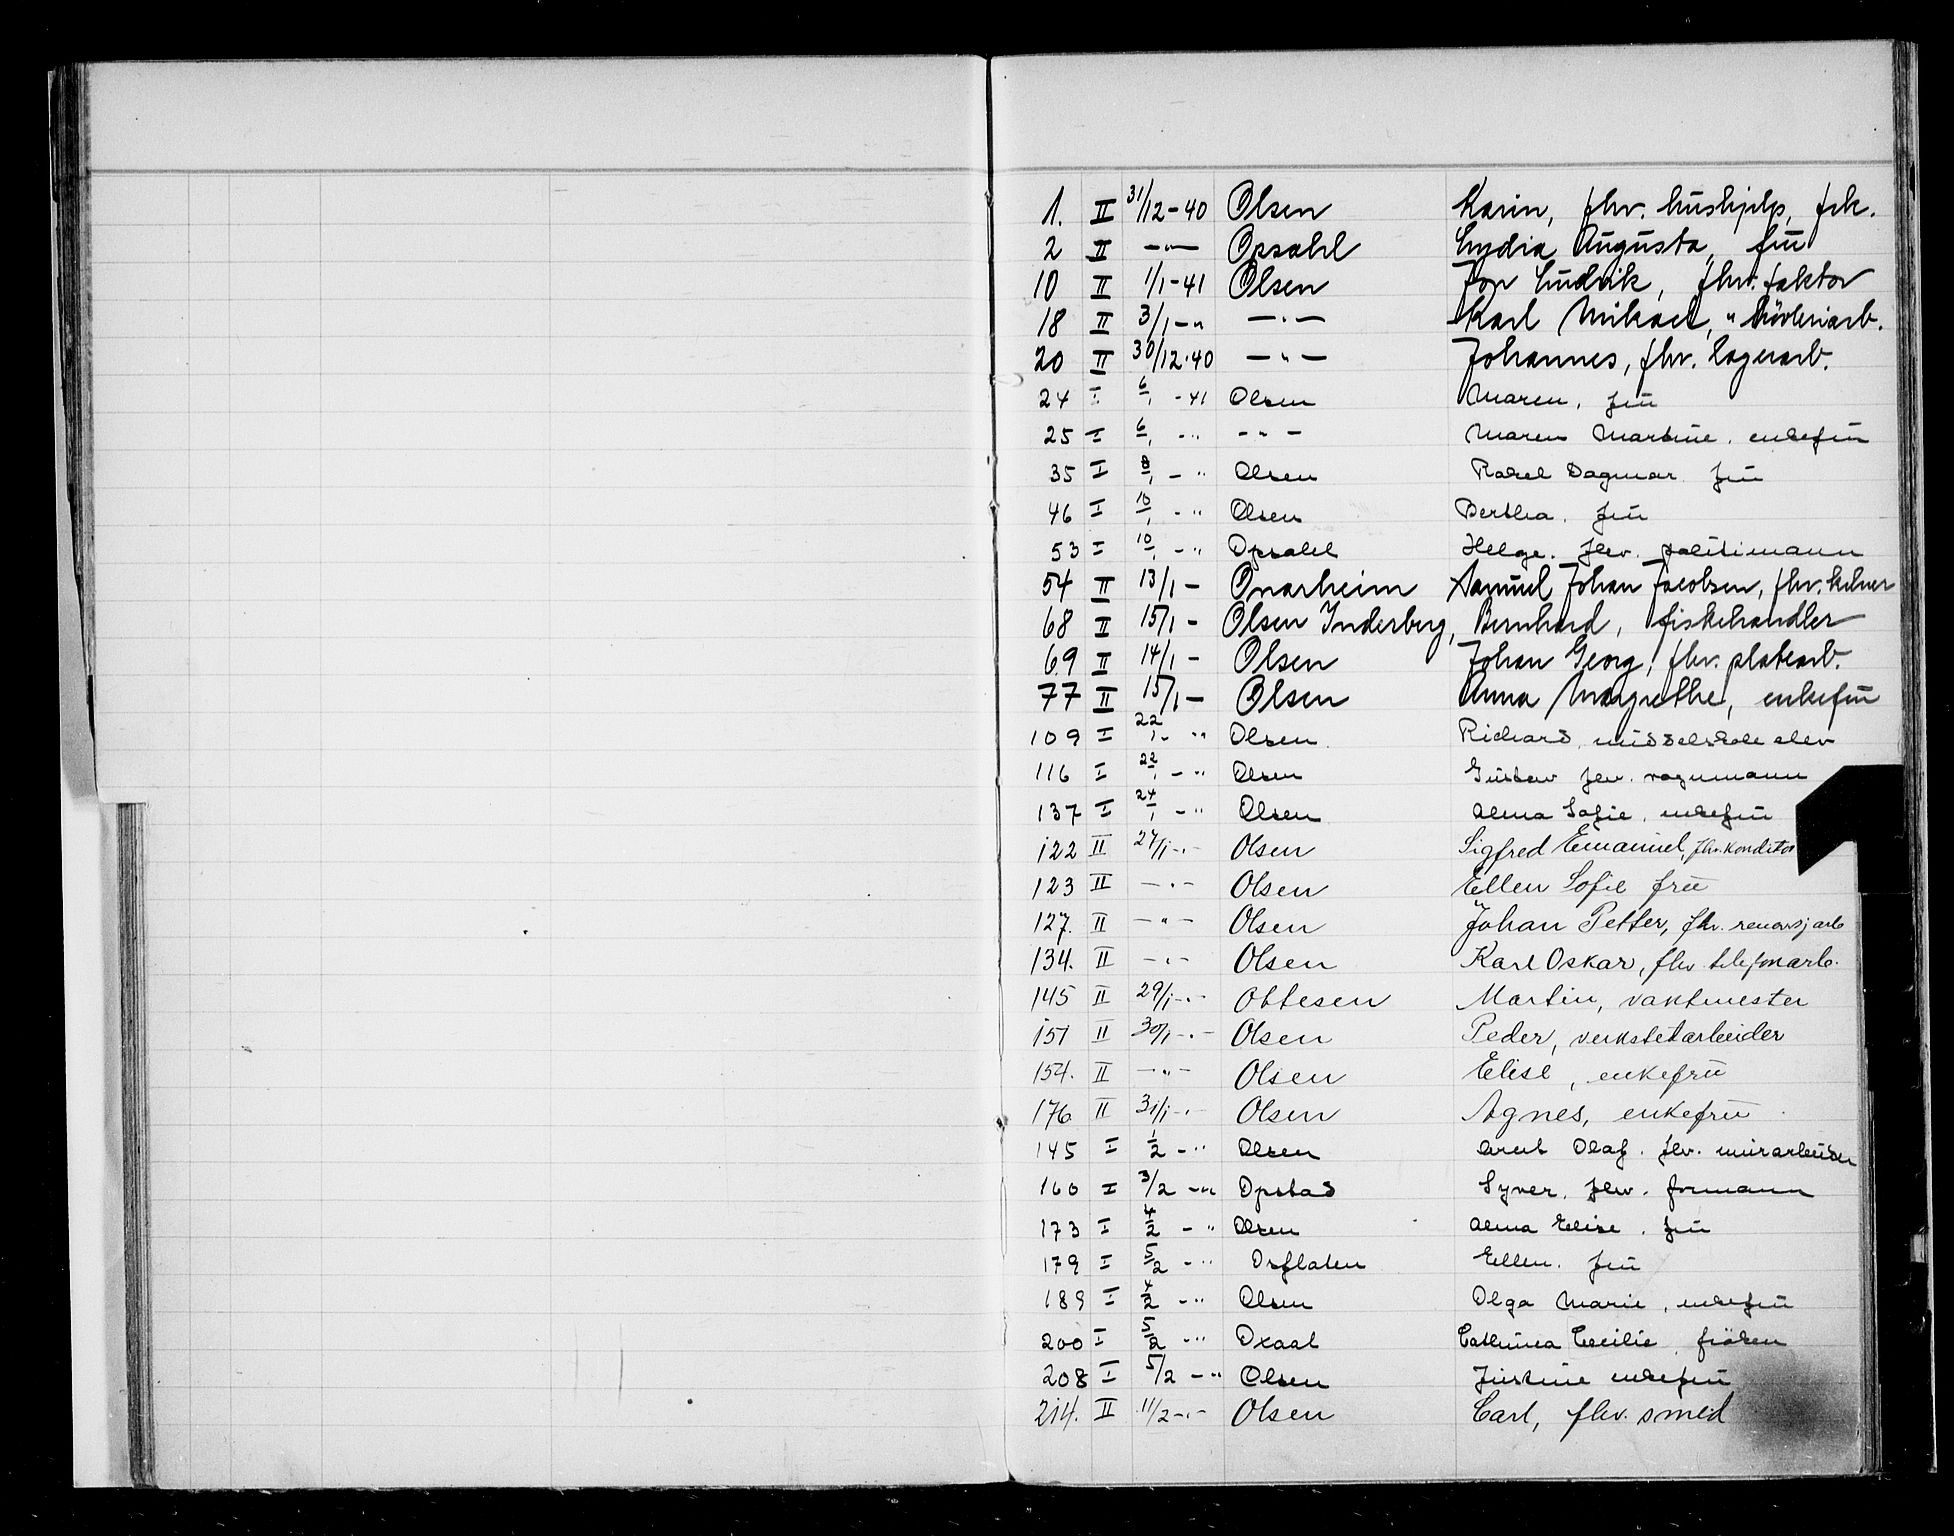 1. II 31/12-40 Olsen Karin, fhv. hushjelp, frk.
2 II —"— Opsahl Lydia Augusta, frü
10 II 1/1-41 Olsen Jon Ludvik, fhv. faktor
18 II 3/1-" —"— Karl Mikael, " høvleriarb.
20 II 30/12-40 —"— Johannes, fhv. lagerarb.
24 I 6/1 -41 Olsen Maren, frü
25 I 6/1 -" —"— Maren Martine, enkefrü
35 I 8/1 -" Olsen Rakel Dagmar frü
46 I 10/1 -" Olsen Bertha. frü
53 I 10/1 -" Opsahl Helge. fhv. politimann
54 II 13/1 - Onarheim Samuel Johan Jacobsen, fhv. kelner
68 II 15/1 - Olsen Inderberg, Bernhard, fiskehandler
69 II 14/1 - Olsen Johan Georg, fhv. platearb.
77 II 15/1 - Olsen Anna Margrethe, enkefrü
109 I 22/1 -" Olsen Richard, middelskole elev
116 I 22/1 -" Olsen Gustav fhv. vognmann
137 I 24/1 -" Olsen Alma Sofie, enkefrü
122 II 27/1 -"- Olsen Sigfred Emanuel, fhv. konditor
123 II —"— Olsen Ellen Sofie frü
127. II —"— Olsen Johan Petter, fhv. renovsj arb
134. II —"— Olsen Karl Oskar, fhv telefonarb.
145 II 29/1 -"- Ottesen Martin, vaktmester
151 II 30/1 -"- Olsen Peder, verkstetarbeider
154. II —"— Olsen Elise, enkefrü
176 II 31/1 -"- Olsen Agnes, enkefrü
145 I 1/2 -" Olsen Arnt Olaf. fhv. murarbeider
160 I 3/2 -" Opstad Syver. fhv. formann
173 I 4/2 -" Olsen Alma Elise. frü
179 I 5/2 -" Osflaten Ellen. frü
189 I 4/2 -" Olsen Olga Marie, enkefrü
200 I 5/2 -" Oxaal Cathinca Cecilie, frøken
208 I 5/2 -" Olsen Justine enkefrü
214. II 11/2 -"- Olsen Carl, fhv. smed